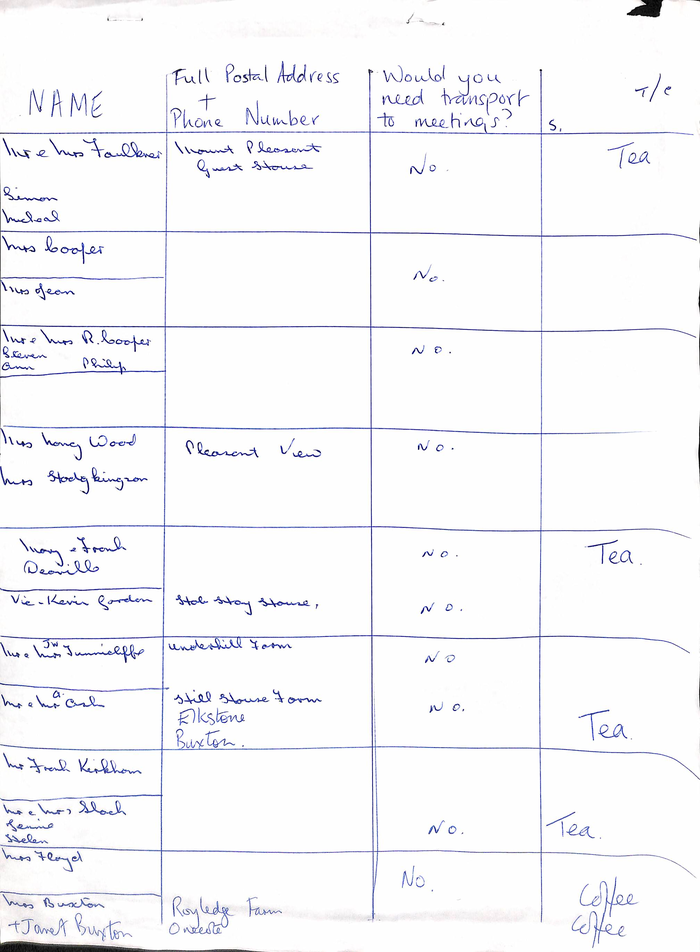 NAME
Full Postal Address
+
Phone Number
Would you
need transport
to meetings?
S.
T/C
Mr e Mrs Faulkner
Mount Pleasant
Guest House
No.
Tea
Simon
Mrs Cooper
No.
Mrs Jean
Mr e Mrs R. Cooper
No.
Steven
Ann Philip
Mrs Wood
Pleasant View
No.
Mrs Hodgkinson
Mary e Frank
Deaville
No.
Tea.
Vic - Kevin Gordon
House,
No.
JW
Mr e Mrs Tunnicliffe
Underhill Farm
No
a.
Mr e Mrs Ash
Hill House Farm
No.
Elkstone
Buxton.
Tea.
Mr Frank Kirkham
Mr e Mrs
No.
Tea.
Helen
Mrs Floyd
No.
Mrs Buxton
Royledge Farm
Coffee
+ Janet Buxton
Onecote
Coffee